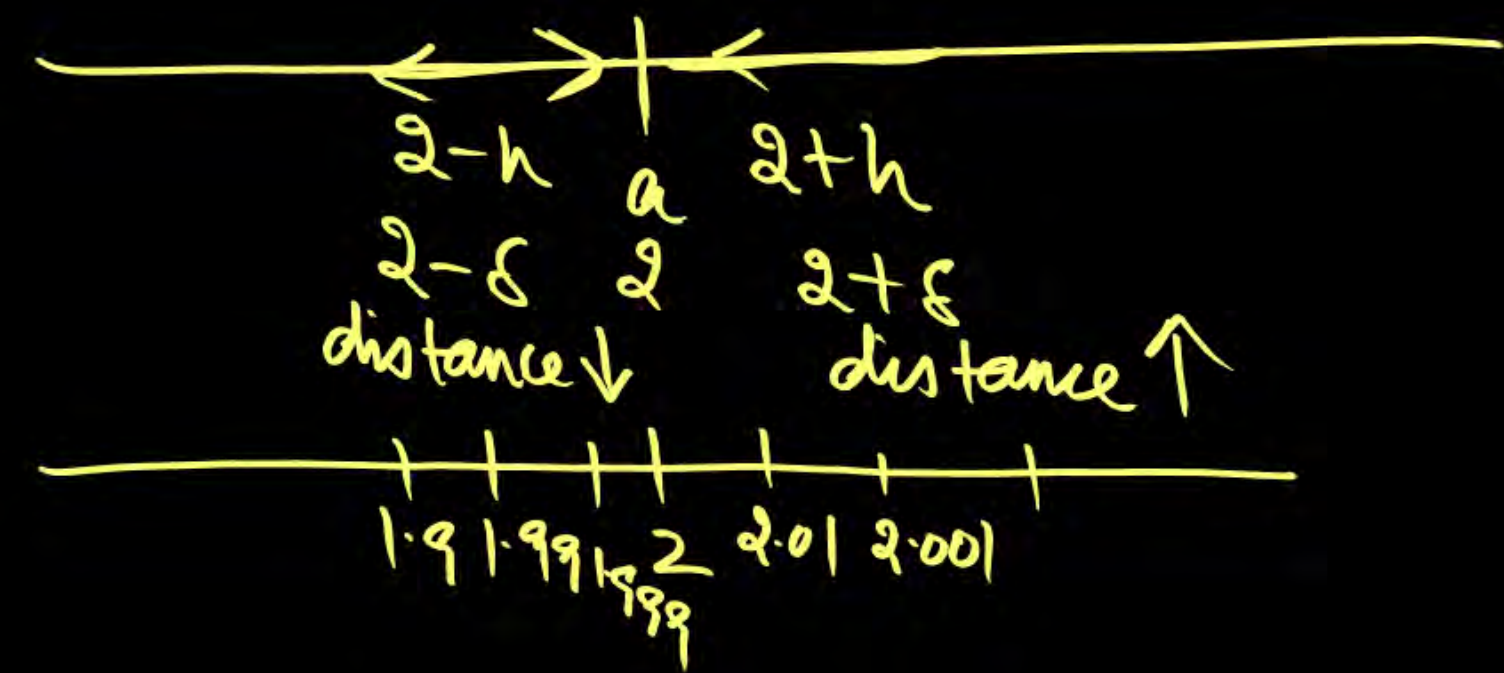 2-h a 2+h
2-δ 2 2+δ
distance ↓ distance ↑
1.9 1.99 1.999 2 2.01 2.001